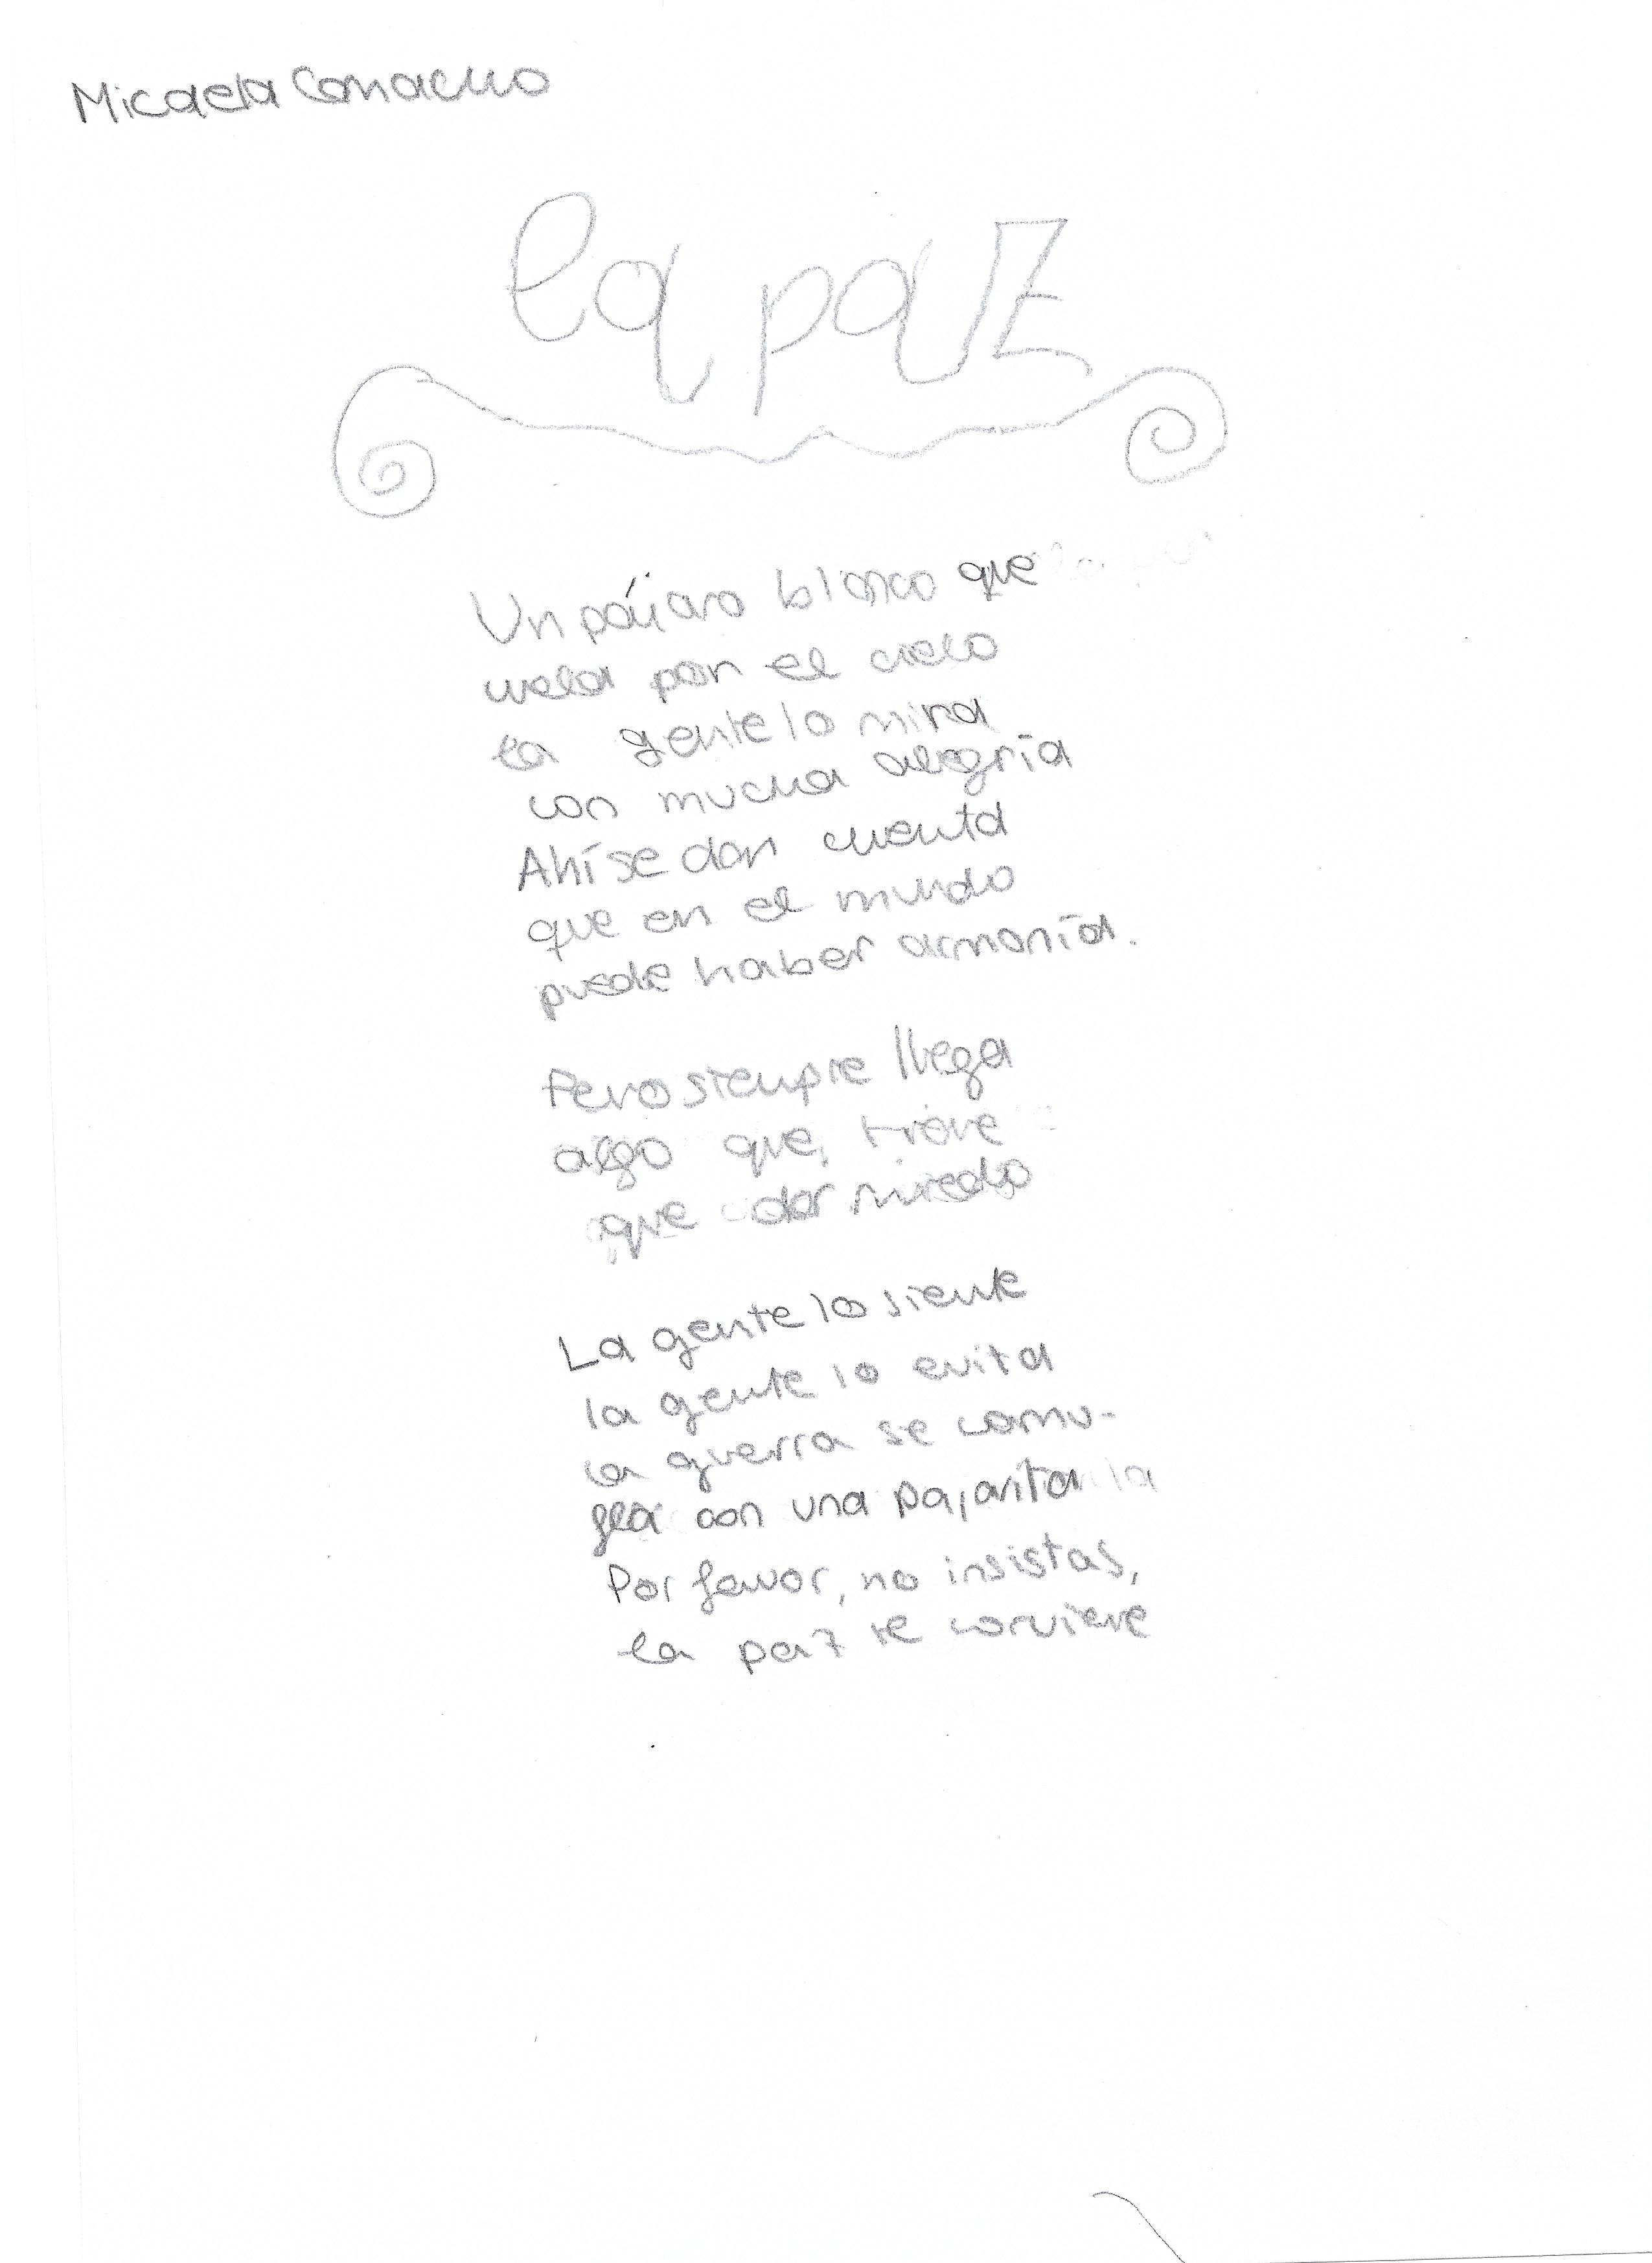 Micaela Camacho
la paz
Un pájaro blanco que
vuela por el cielo
la gente lo mira
con mucha alegría
Ahí se dan cuenta
que en el mundo
puede haber armonía.
Pero siempre llega
algo que tiene
que dar miedo
La gente lo siente
la gente lo evita
la guerra se camu-
fla con una pajarita
Por favor, no insistas,
la paz te conviene